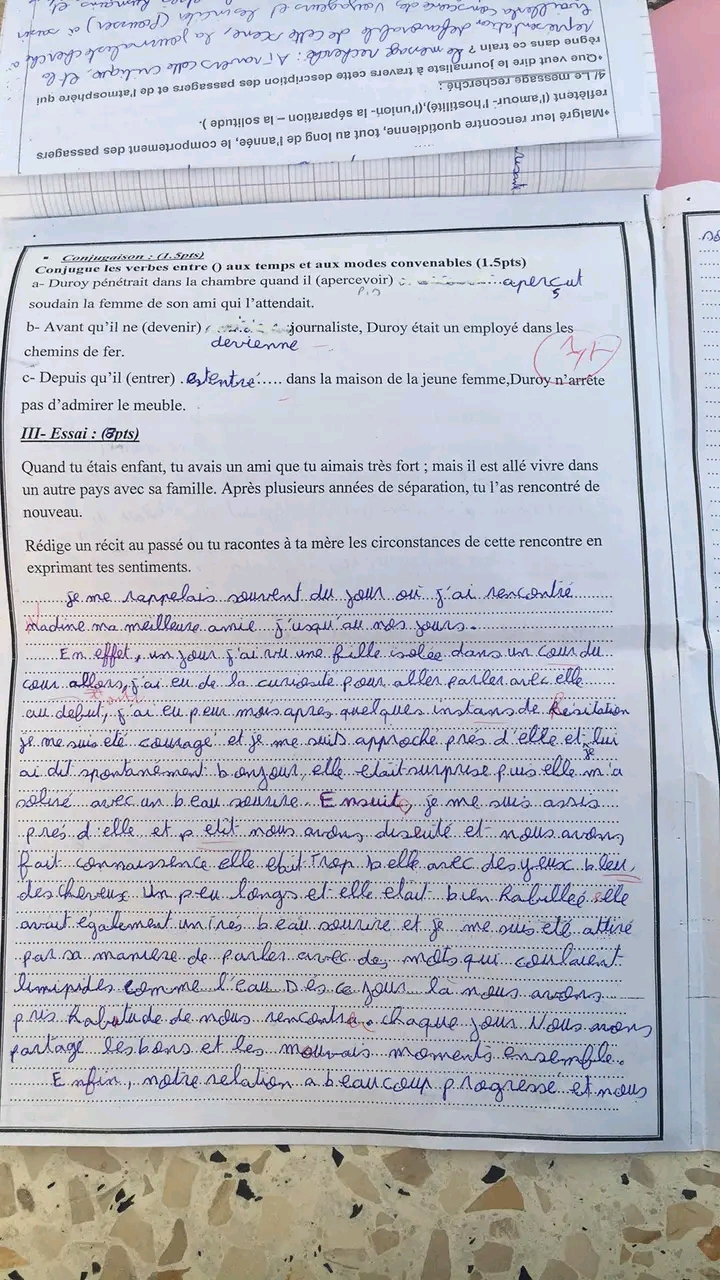 traillera conscience des voyageurs et les inciter (pousser) à avoir
représentation défavorable de cette scène, le journaliste cherche à
Le message recherché: A travers cette critique et la
règne dans ce train ?
•Que veut dire le journaliste à travers cette description des passagers et de l'atmosphère qui
4/ Le message recherché :
reflètent (l'amour- l'hostilité),(l'union- la séparation – la solitude ).
•Malgré leur rencontre quotidienne, tout au long de l'année, le comportement des passagers
▪ Conjugaison : (1.5pts)
Conjugue les verbes entre () aux temps et aux modes convenables (1.5pts)
a- Duroy pénétrait dans la chambre quand il (apercevoir) aperçut
P.S
soudain la femme de son ami qui l'attendait.
b- Avant qu'il ne (devenir) journaliste, Duroy était un employé dans les
devienne
chemins de fer.
c- Depuis qu'il (entrer) .est entré..... dans la maison de la jeune femme,Duroy n'arrête
pas d'admirer le meuble.
III- Essai : (7pts)
Quand tu étais enfant, tu avais un ami que tu aimais très fort ; mais il est allé vivre dans
un autre pays avec sa famille. Après plusieurs années de séparation, tu l'as rencontré de
nouveau.
Rédige un récit au passé ou tu racontes à ta mère les circonstances de cette rencontre en
exprimant tes sentiments.
je me rappelais souvent du jour où j'ai rencontré
Nadine ma meilleure amie j'usqu'au nos jours.
En effet, un jour j'ai vu une fille isolée dans un cour du
cour allors, j'ai eu de la curiosité pour aller parler avec elle
au debut, j'ai eu peur mais après quelques instans de hésitation
je me suis été couragé et je me suis approché près d'elle et lui
je
ai dit spontanément bonjour, elle etait surprise puis elle m'a
salué avec un beau sourire. Ensuite, je me suis assis
près d'elle et p etit nous avons discuté et nous avons
fait connaissence elle etait Trop belle avec des yeux bleu,
des cheveux un peu longs et elle était bien habilleé elle
avait également un trés beau sourire et je me suis été attiré
par sa manière de parler avec des mots qui coulaient
limipides comme l'eau Dès ce jour là nous avons
pris habitude de nous rencontre. chaque jour Nous avons
partagé les bons et les mauvais moments ensemble.
Enfin, notre relation a beaucoup progressé et nous